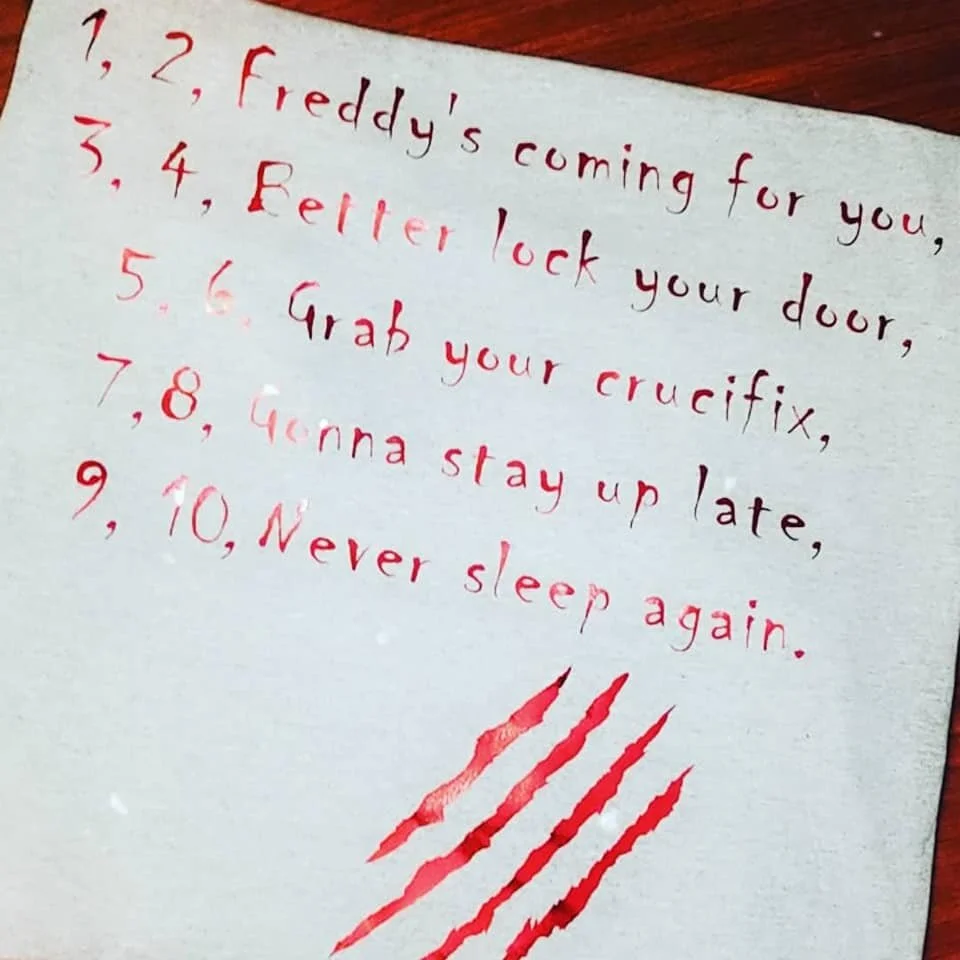 1, 2, Freddy's coming for you,
3, 4, Better lock your door,
5, 6, Grab your crucifix,
7, 8, Gonna stay up late,
9, 10, Never sleep again.